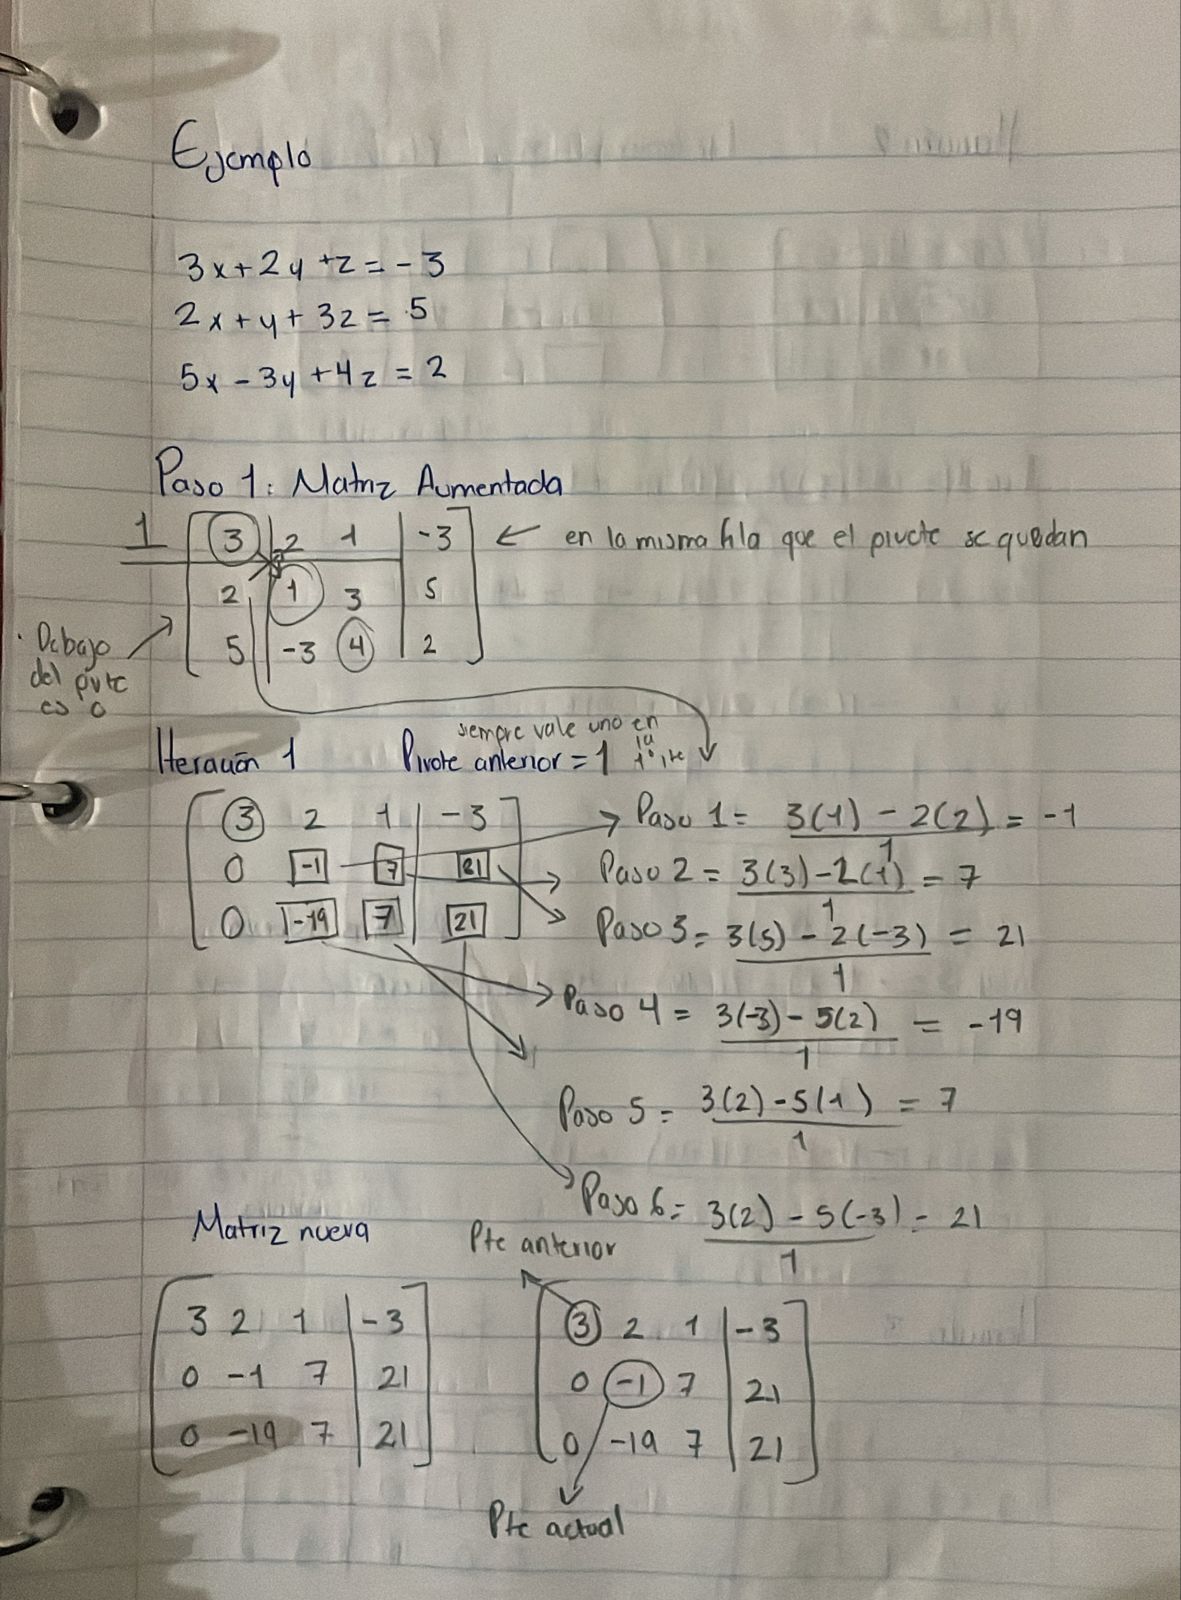 Ejemplo
3x+2y+z=-3
2x+y+3z=5
5x-3y+4z=2
Paso 1: Matriz Aumentada
1
3 2 1 | -3 ← en la misma fila que el pivote se quedan
2 1 3 | 5
5 -3 4 | 2
Debajo
del pvte
es 0
siempre vale uno en
la
1° ite
Iteración 1 Pivote anterior = 1
3 2 1 | -3
0 -1 7 | 21
0 -19 7 | 21
Paso 1= 3(1)-2(2)/1 = -1
Paso 2 = 3(3)-2(1)/1 = 7
Paso 3= 3(5)-2(-3)/1 = 21
Paso 4 = 3(-3)-5(2)/1 = -19
Paso 5 = 3(2)-5(1)/1 = 7
Paso 6= 3(2)-5(-3)/1 = 21
Matriz nueva
3 2 1 | -3
0 -1 7 | 21
0 -19 7 | 21
Pte anterior
3 2 1 | -3
0 -1 7 | 21
0 -19 7 | 21
Pte actual